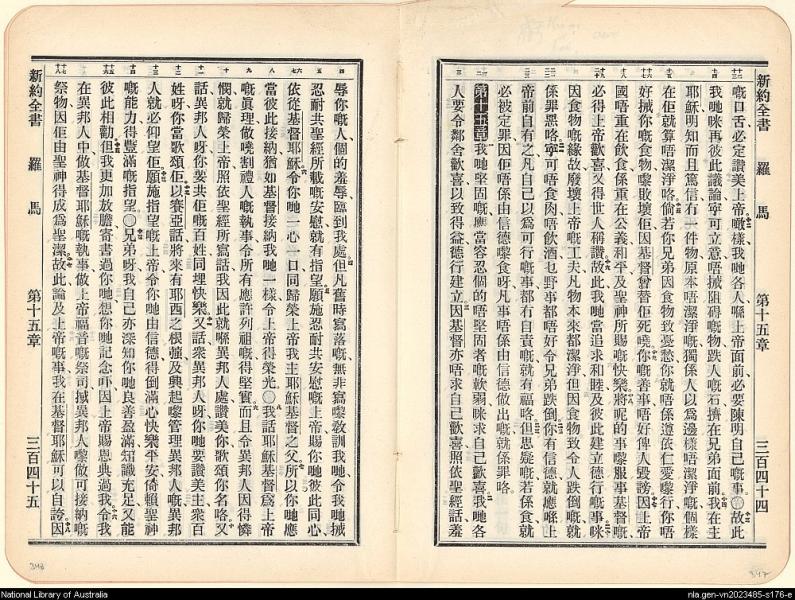 新約全書 羅馬 第十五章 三百四十四
嘅口舌必定讚美上帝噉樣我哋各人喺上帝面前必要陳明自己嘅事○故此
我哋咪再彼此議論寧可立意唔擺阻碍嘅物跌人嘅石擠在兄弟面前我在主
耶穌明知而且篤信冇一件物原本唔潔淨嘅獨係人以爲邊樣唔潔淨嘅個樣
在佢就算唔潔淨咯倘若你兄弟因食物致憂愁你就唔係遵依仁愛嚟行你唔
好搣你嘅食物嚟敗壞佢因基督曾替佢死嘵你嘅善事唔好俾人毀謗因上帝
國唔重在飲食係重在公義和平及聖神所賜嘅快樂將呢的事嚟服事基督嘅
必得上帝歡喜又得世人稱讚故此我哋當追求和睦及彼此建立德行嘅事咪
因食物嘅緣故廢壞上帝嘅工夫凡物本來都潔淨但因食物致令人跌倒嘅就
係罪惡咯寧可唔食肉唔飲酒乜野事都唔好令兄弟跌倒你有信德就應喺上
帝前自有之凡自己以爲可行嘅事都冇自責嘅就有福咯但思疑嘅若係食就
必被定罪因佢唔係由信德嚟食呀凡事唔係由信德做出嘅就係罪咯
第十五章 我哋堅固嘅應當容忍個的唔堅固者嘅軟弱咪求自己歡喜我哋各
人要令鄰舍歡喜以致得益德行建立因基督亦唔求自己歡喜照依聖經話羞
辱你嘅人個的羞辱臨到我處但凡舊時寫落嘅無非寫嚟教訓我哋令我哋搣
忍耐共聖經所載嘅安慰就有指望願施忍耐共安慰嘅上帝賜你哋彼此同心
依從基督耶穌令你哋一心一口同歸榮上帝我主耶穌基督之父所以你哋應
當彼此接納猶如基督接納我哋一樣令上帝得榮光○我話耶穌基督爲上帝
嘅眞理做嘵割禮人嘅執事令所有應許列祖嘅得堅實而且令異邦人因得憐
憫就歸榮上帝照依聖經所寫話我因此就喺異邦人處讚美你歌頌你名咯又
話異邦人呀你要共佢嘅百姓同埋快樂又話衆異邦人呀你哋要讚美主衆百
姓呀你當歌頌佢以賽亞話將來有耶西之根蔃及興起嚟管理異邦人嘅異邦
人就必仰望佢願施指望嘅上帝令你哋由信德得倒滿心快樂平安倚賴聖神
嘅能力得豐滿嘅指望○兄弟呀我自己亦深知你哋良善盈滿知識充足又能
彼此相勸但我更加放膽寄書過你哋想你哋記念吓因上帝賜恩典過我令我
在異邦人中做基督耶穌嘅執事做上帝福音嘅祭司搣異邦人嚟做可接納嘅
祭物因佢由聖神得成爲聖潔故此論及上帝嘅事我在基督耶穌可以自誇因
新約全書 羅馬 第十五章 三百四十五
348
347
National Library of Australia
nla.gen-vn2023485-s176-e